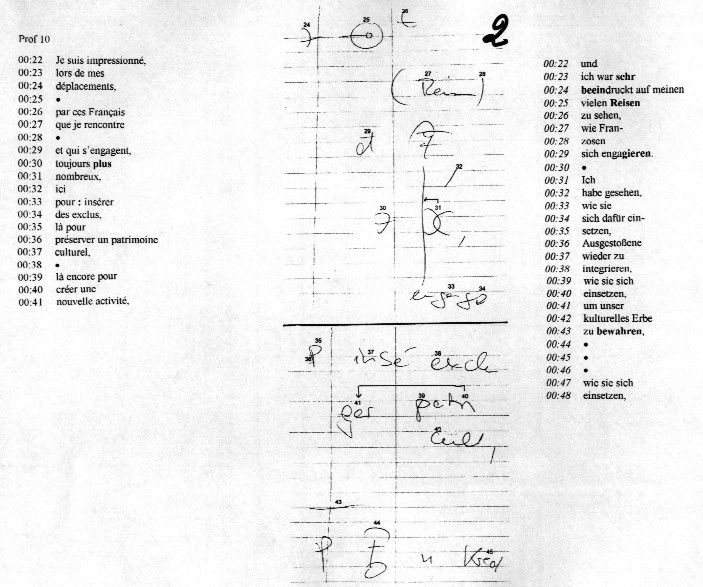 Prof 10
00:22 Je suis impressionné,
00:23 lors de mes
00:24 déplacements,
00:25 •
00:26 par ces Français
00:27 que je rencontre
00:28 •
00:29 et qui s'engagent,
00:30 toujours plus
00:31 nombreux,
00:32 ici
00:33 pour : insérer
00:34 des exclus,
00:35 là pour
00:36 préserver un patrimoine
00:37 culturel,
00:38 •
00:39 là encore pour
00:40 créer une
00:41 nouvelle activité,
2
24 25 26
27 28
(Reisn)
29
32
30 31
33 34
engag
35
36 37 38
P insé excl
41 39 40
ger patr
42
cult,
43
44
45
P
00:22 und
00:23 ich war sehr
00:24 beeindruckt auf meinen
00:25 vielen Reisen
00:26 zu sehen,
00:27 wie Fran-
00:28 zosen
00:29 sich engagieren.
00:30 •
00:31 Ich
00:32 habe gesehen,
00:33 wie sie
00:34 sich dafür ein-
00:35 setzen,
00:36 Ausgestoßene
00:37 wieder zu
00:38 integrieren,
00:39 wie sie sich
00:40 einsetzen,
00:41 um unser
00:42 kulturelles Erbe
00:43 zu bewahren,
00:44 •
00:45 •
00:46 •
00:47 wie sie sich
00:48 einsetzen,